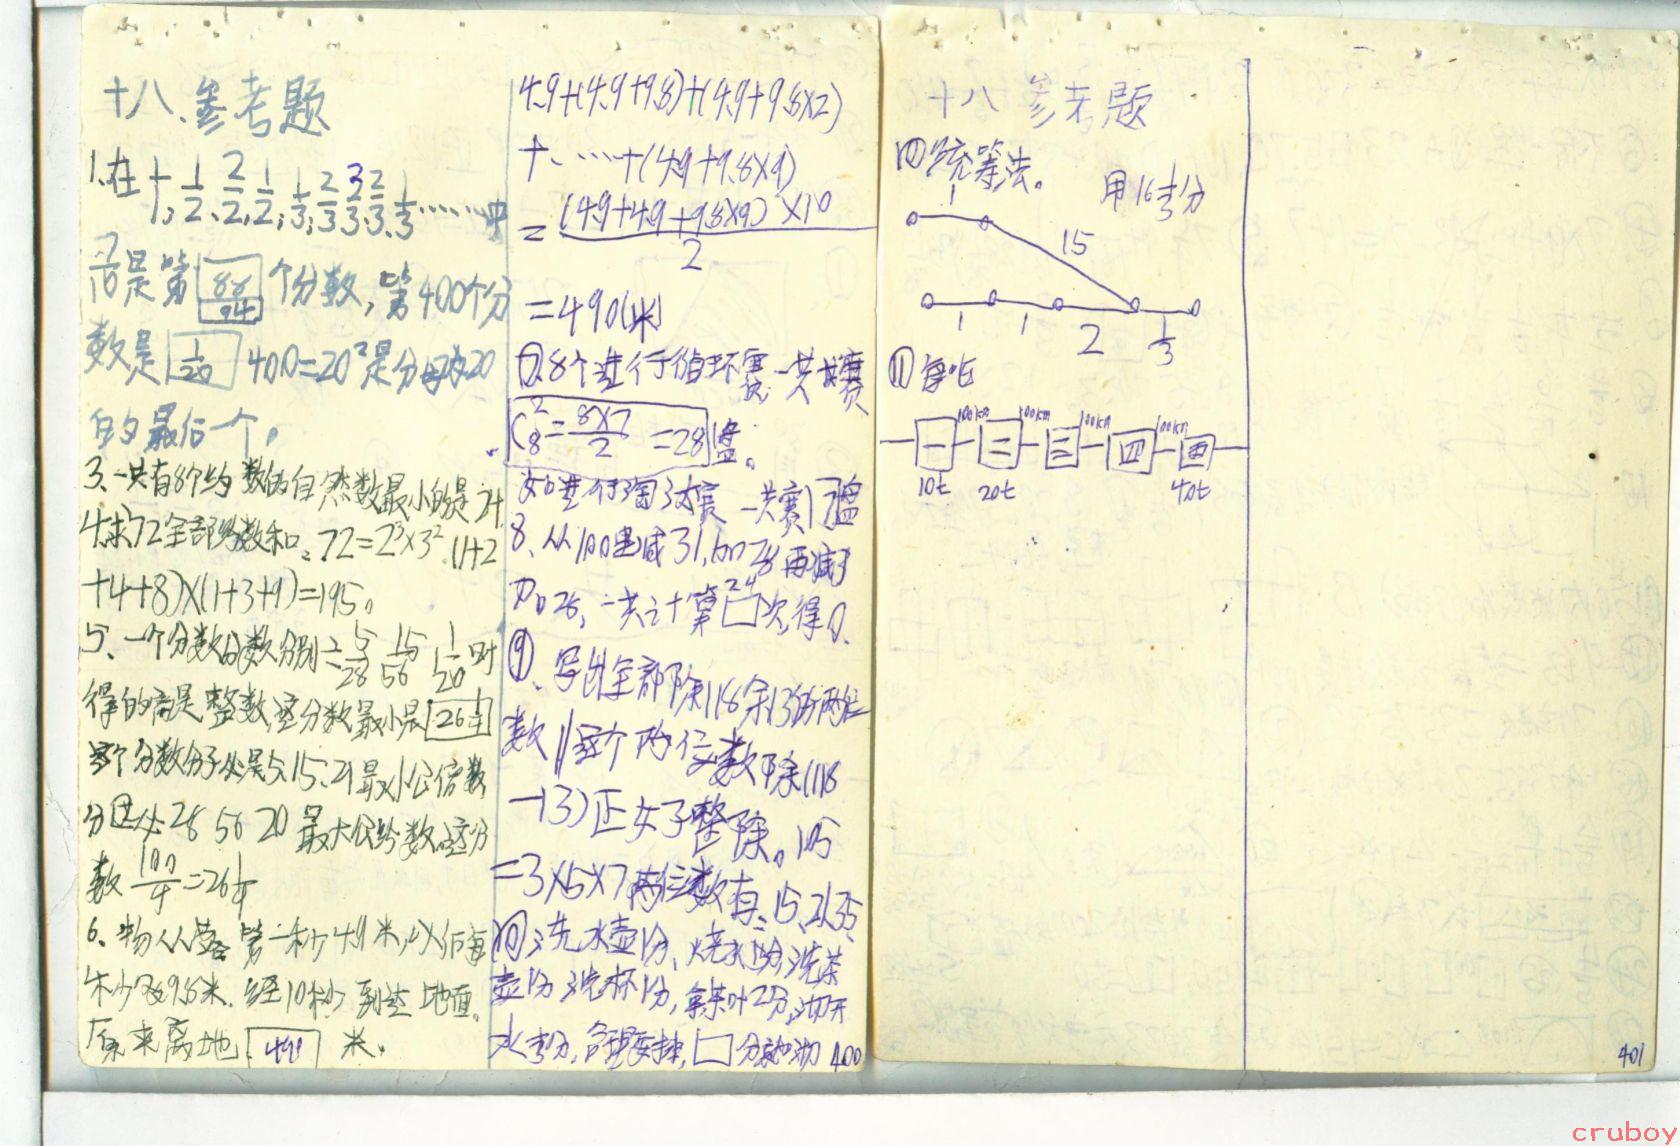 十八、参考题
1.在 1/1, 1/2、2/2、1/2, 1/3、2/3、3/3、2/3、1/3……中
7/10是第 88 94 个分数,第400个分
数是 1/20 400=20²是分母为20
的最后一个。
3、一共有8个约数的自然数最小的是24.
4.求72全部约数和。72=2³×3².(1+2
+4+8)×(1+3+9)=195。
5、一个分数分别÷5/28 15/56 1 1/20时
得的商是整数,这分数最小是 26 1/4
这个分数分子必是5、15、21最小公倍数
分母必28 56 20 最大公约数,这分
数 105/4=26 1/4
6、物从 落 第一秒4.9米,以后每
秒多9.8米.经10秒 到达地面.
原来离地 490 米.
4.9+(4.9+9.8)+(4.9+9.8×2)
+……+(4.9+9.8×9)
=(4.9+4.9+9.8×9)×10/2
=490(米)
⑦.8个进行循环赛,一共赛
C₈²=8×7/2=28 盘。
如进行淘汰赛 一共赛7盘
8、从100里减31,加28再减31
加28,一共计算 24 次,得0.
⑨、写出全部除118余13的两位
数 这个两位数除(118
-13)正好整除。105
=3×5×7两位数有:15、21、35、
⑩洗水壶1分、烧水15分,洗茶
壶1分 洗杯1分,拿茶叶2分,沏开
水1/3分,合理安排,□分就沏
400
十八 参考题
⑩统筹法。
用16 1/3分
1
15
1 1 2 1/3
⑪每吨
100km 100km 100km 100km
一 二 三 四 五
10t 20t 40t
401
cruboy